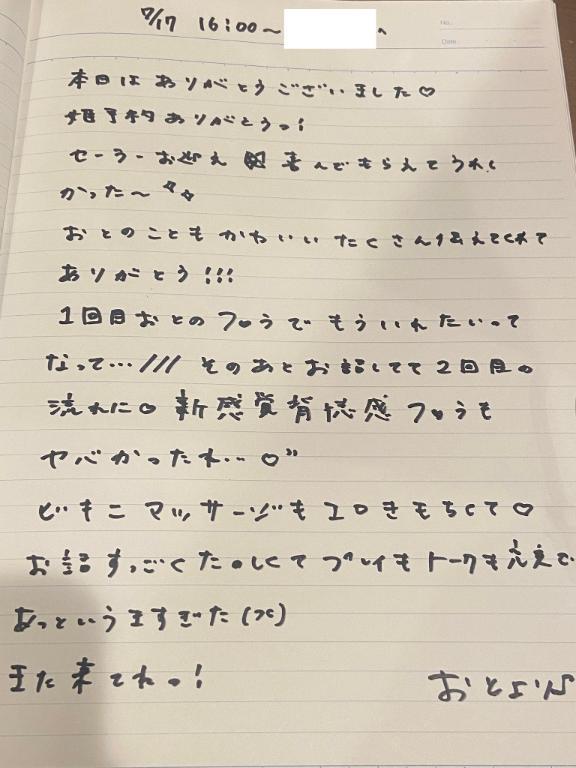 7/17 16:00〜 へ
No.
Date
本日はありがとうございました♡
姫予約ありがとうっ!
セーラーお迎え 喜んでもらえてうれし
かった〜
おとのこともかわいいたくさん伝えてくれて
ありがとう!!!
1回目おとのフェラでもういれたいって
なって…/// そのあとお話してて2回目の
流れに♡ 新感覚背徳感フェラも
ヤバかったね…♡"
ビキニマッサージもエロきもちくて♡
お話すっごくたのしくてプレイもトークも充実で
あっというますぎた(泣)
また来てねっ!
おとより